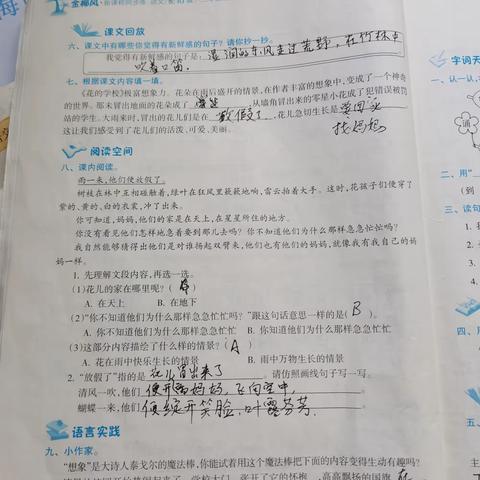 金椰风·新课程同步练
课文回放
六、课文中有哪些你觉得有新鲜感的句子?请你抄一抄。
我觉得有新鲜感的句子是:湿润的东风走过荒野,在竹林中
吹着口笛。
七、根据课文内容填一填。
《花的学校》极富想象力。花朵在雨后盛开的情景,在作者丰富的想象中,变成了一个神奇
的世界。那未冒出地面的花朵成了学生 从墙角冒出来的零星小花成了犯错误被罚
站的学生。大雨来时,冒出的花儿们是在放假了。花儿急切生长是要回家
找妈妈
这让我们感受到了花儿们的活泼、可爱、美丽。
阅读空间
八、课内阅读。
雨一来,他们便放假了。
树枝在林中互相碰触着,绿叶在狂风里簌簌地响,雷云拍着大手。这时,花孩子们便穿了
紫的、黄的、白的衣裳,冲了出来。
你可知道,妈妈,他们的家是在天上,在星星所住的地方。
你没有看见他们怎样地急着要到那儿去吗?你不知道他们为什么那样急急忙忙吗?
我自然能够猜得出他们是对谁扬起双臂来,他们也有他们的妈妈,就像我有我自己的妈
妈一样。
1. 先理解文段内容,再选一选。
(1)花儿的家在哪里呢?( A )
A. 在天上 B. 在地下
(2)“你不知道他们为什么那样急急忙忙吗?”跟这句话意思一样的是( B )。
A. 你不知道他们为什么那样急急忙忙 B. 你知道他们为什么那样急急忙忙
(3)这部分内容描绘了什么样的情景?( A )
A. 花在雨中快乐生长的情景 B. 雨中万物生长的情景
2. “放假了”指的是花儿冒出来了。请仿照画线句子写一写。
清风一吹,他们便开离妈妈,飞向空中。
蝴蝶一来,他们便绽开笑脸,吐露芬芳。
语言实践
九、小作家。
“想象”是大诗人泰戈尔的魔法棒,你能试着用这个魔法棒把下面的内容变得生动有趣吗?
字词天
一、认一认,
诵
二、用“
(到
三、读句
1.
2.
3.
四、
五、